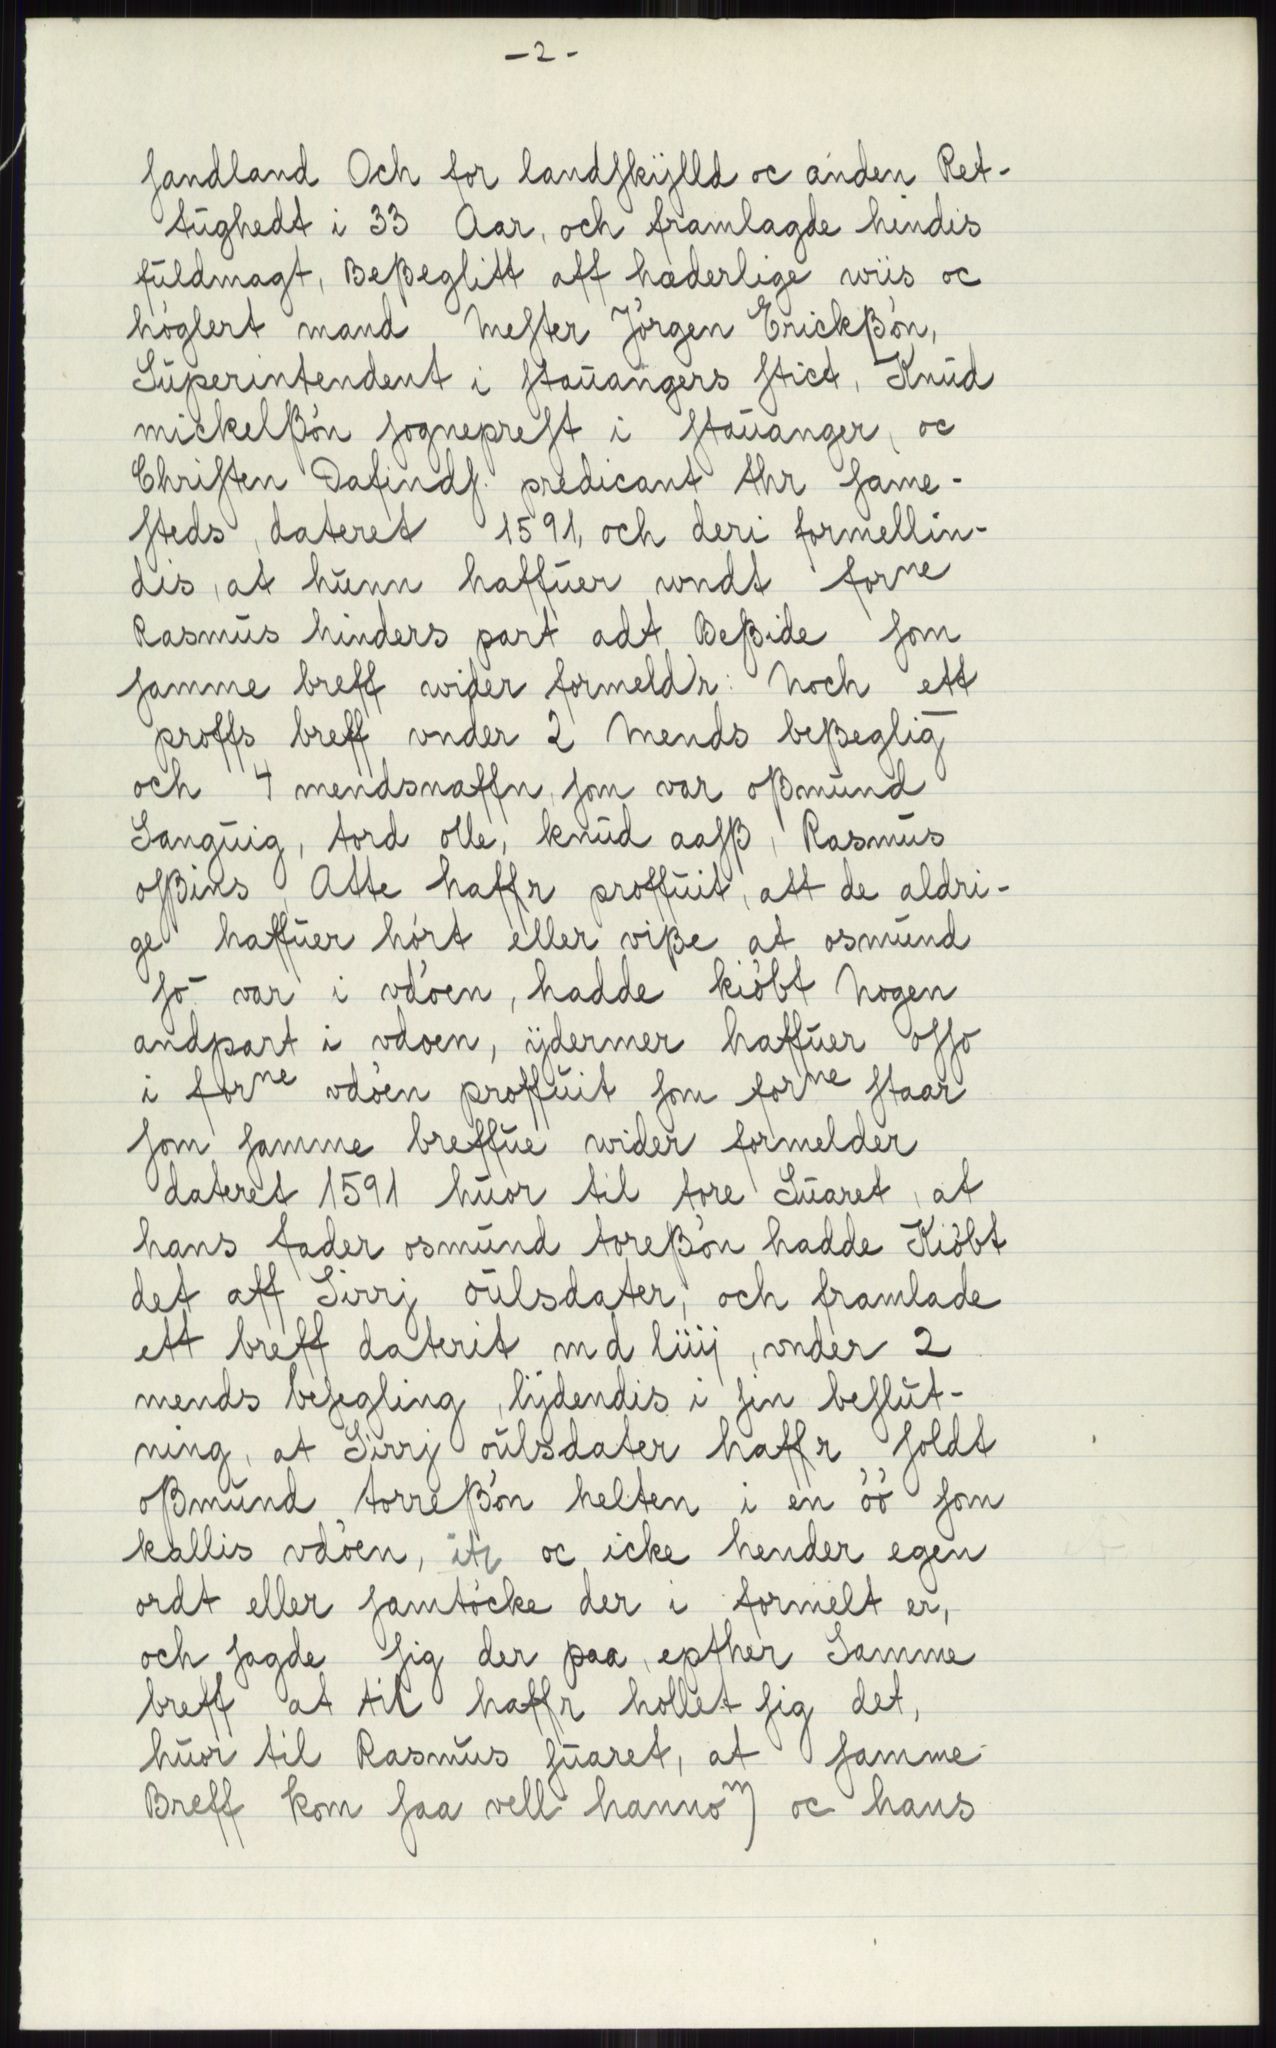 - 2 -
sandland Och for landskÿlld oc anden Ret-
tughedt i 33 Aar, och framlagde hindis
fuldmagt, Beßeglitt aff hæderlige wiis oc
höglert mand Mester Jörgen Erickßön,
Superintendent i stauangers stict, Knud
mickelßön sogneprest i stauanger, oc
Christen Dafinds. predicant thr same-
steds, dateret 1591, och deri formellin-
dis, at hunn haffuer wndt forne
Rasmus hinders part adt Beßide som
samme breff wider formeld'r: Noch ett
proffs breff vnder 2 Mends beßeglig̅
och 4 mendsnaffn, som var oßmund
Sanguig, tord olle, knud aasß, Rasmus
osßins, Atte haffr proffuit, att de aldri-
ge haffuer hört eller viße at osmund
so̅ var i vdöen, hadde kiöbt Nogen
andpart i vdoen, ÿdermer haffuer osso
i forne vdöen proffuit som forne staar
som samme breffue wider formelder
dateret 1591 huor til tore Suaret, at
hans fader osmund toreßön hadde Kiöbt
det aff Sirrj oulsdater, och framlade
ett breff daterit m d liiij, vnder 2
mends besegling, lÿdendis i sin beslut-
ning, at Sirrj oulsdater haffr soldt
oßmund torreßön helten i en öö som
kallis vdöen, oc icke hender egen
ordt eller samtöcke der i formelt er,
och sagde sig der paa, epther Samme
breff at til haffr hollet sig det,
huor til Rasmus suaret, at samme
Breff kom saa vell hannom) oc hans